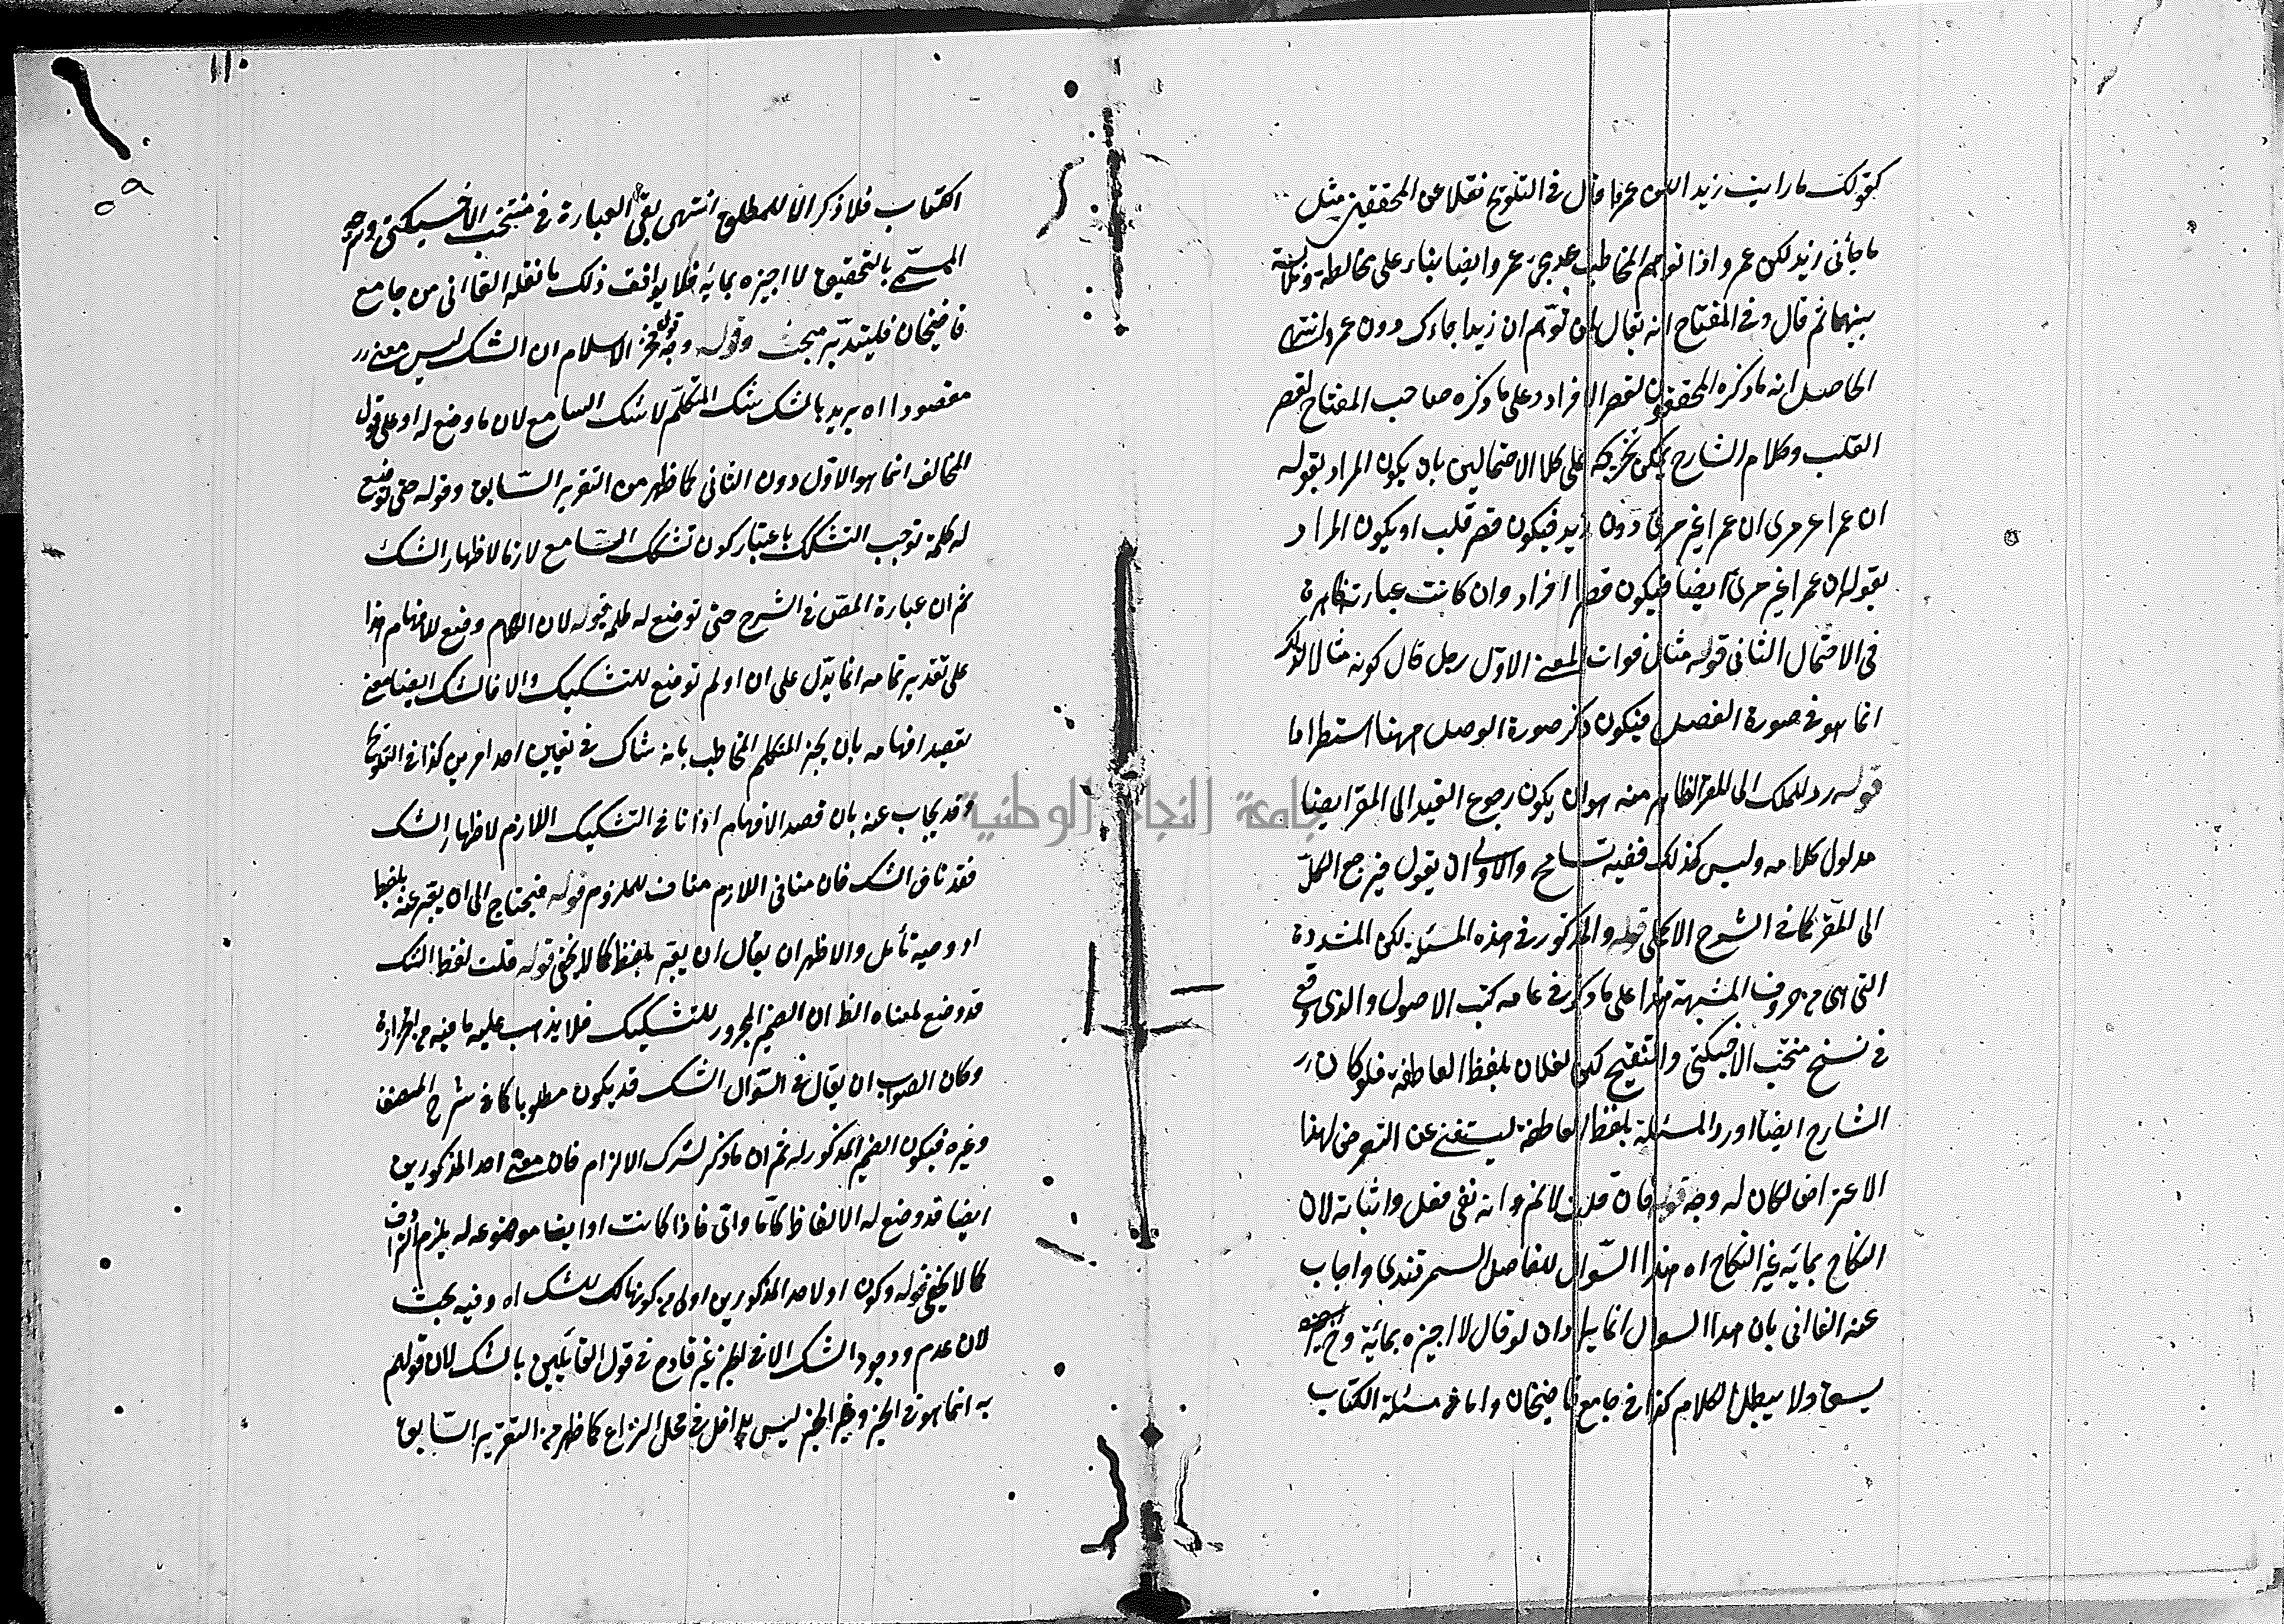 كقولك ما رايت زيدا لكن عمرا قال في التلويح نقلا عن المحققين مثل
ما جأنى زيد لكن عمرو اذا توهم المخاطب عدم مجئ عمرو ايضا بناء على مخالطة وملابسة
بينهما ثم قال وفي المفتاح انه يقال لمن توهم ان زيدا جاءك دون عمرو انتهى
الحاصل انه ما ذكره المحققون لقصر الافراد وعلى ما ذكره صاحب المفتاح لقصر
القلب وكلام الشارح يمكن تخريجه على كلا الاحتمالين بان يكون المراد بقوله
ان عمرا غير مرئ ان عمرا غير مرئ دون زيد فيكون قصر قلب او يكون المراد
بقوله ان عمرا غير مرئ ايضا فيكون قصر افراد وان كانت عبارته ظاهرة
في الاحتمال الثاني قوله مثال فوات المعنى الاول رجل قال كونه مثالا لذلك
انما هو في صورة الفصل فيكون ذكر صورة الوصل ههنا استطرادا
قوله رد للملك الى المقر الظاهر منه هو ان يكون رجوع العبد الى المقر ايضا
مدلول كلامه وليس كذلك ففيه تسامح والاولى ان يقول فيرجع الكل
الى المقر كما في الشرح الاكملى قوله والمذكور في هذه المسئلة لكن المشددة
التي هي من حروف المشبهة هذا على ما ذكر في عامه كتب الاصول والذى وقع
في نسخ منتخب الاخسيكتى والتنقيح لكن لفلان بلفظ العاطفة فلو كان
الشارح ايضا اورد المسئلة بلفظ العاطفة ليستغنى عن التعرض لهذا
الاعتراض لكان له وجه قوله فان قلت لا نم وانه نفى فعل واثباته لان
النكاح بمائة غير النكاح اه هذا السؤال للفاضل السمرقندى واجاب
عنه القاانى بان هذا السوال انما يراد ان لو قال لا اجيزه بمائة و
يسوق ولا يبطل الكلام كذا في جامع قاضيخان واما في مسئلة الكتاب
١١٠
٥٩
الكتاب فلا ذكر الا للمطلق انتهى بقى العبارة في منتخب الاخسيكتى وشرحه
المسمى بالتحقيق لا اجيزه بمائة فلا يوافق ذلك ما نقله القاانى من جامع
قاضيخان فليتدبر مبحث وقوله وجه قول فخر الاسلام ان الشك ليس معنى
مقصودا اه يريد بالشك شك المتكلم لا شك السامع لان ما وضع له او على قول
المخالف انما هو الاول دون الثانى كما ظهر من التقرير السابق وقوله حتى توضع
له كلمة توجب التشكك باعتبار كون تشكك السامع لازما لاظهار الشك
ثم ان عبارة المص في الشرح حتى توضع له كلمة قوله لان الكلام وضع للافهام هذا
على تقدير تمامه انما يدل على ان او لم توضع للتشكيك والا فالشك ايضا معنى
يقصد افهامه بان يخبر المتكلم المخاطب بانه شاك في تعيين احد امرين كذا في التلويح
وقد يجاب عنه بان قصد الافهام اذا نافى التشكيك اللازم لاظهار الشك
فقد نافى الشك فان منافى اللازم مناف للملزوم قوله فيحتاج الى ان يعبر عنه بلفظ
او وفيه تأمل والاظهر ان يقال ان يعبر بلفظ كما لا يخفى قوله قلت لفظ الشك
قد وضع لمعناه الظ ان الضمير المجرور للتشكيك فلا يذهب عليه ما فيه من
وكان الصواب ان يقال في السؤال الشك قد يكون مطلوبا كما في شرح المصنف
وغيره فيكون الضمير المذكور له ثم ان ما ذكر لشرك الالزام فان معنى احد المذكورين
ايضا قد وضع له الالفاظ كاما واتى فاذا كانت او ايضا موضوعه له يلزم الترادف
كما لا يخفى قوله وكون او لاحد المذكورين اولى من كونها للشك اه وفيه بحث
لان عدم وجود الشك الا في الخبر غير قادح في قول القائلين بالشك لان قولهم
به انما هو في الخبر وغير الخبر ليس بداخل في محل النزاع كما ظهر من التقرير السابق
جامعة النجاح الوطنية